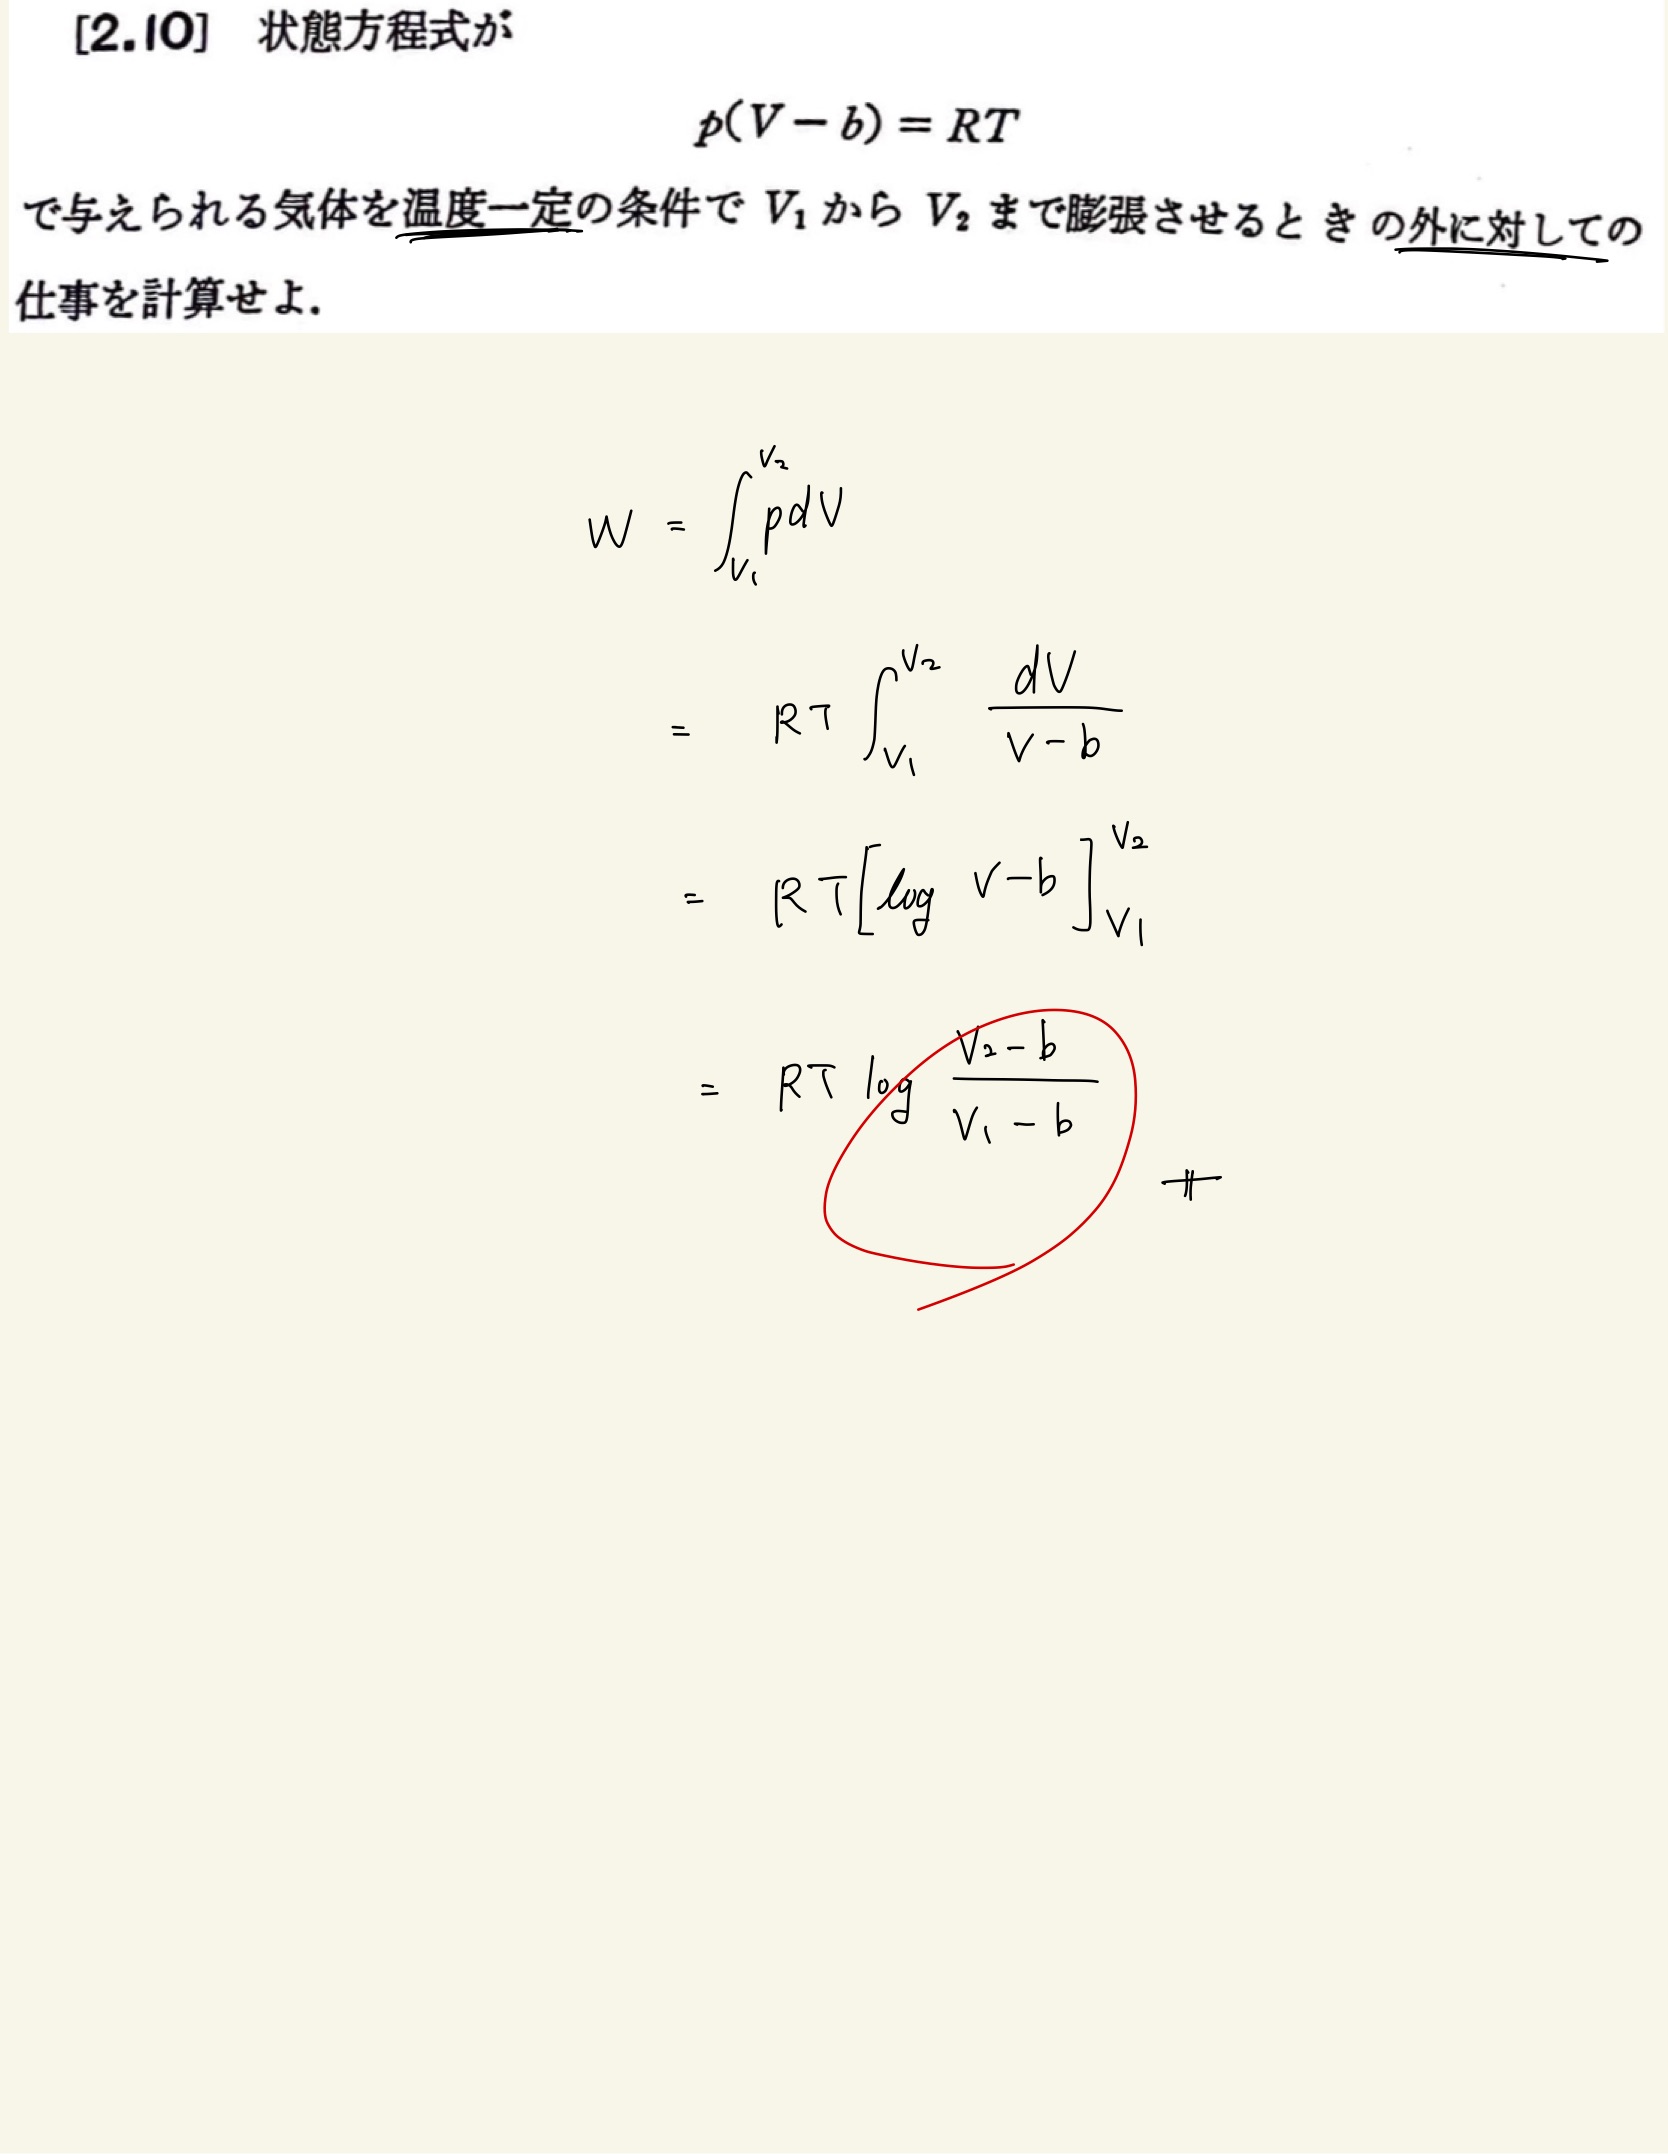 [2.10] 状態方程式が
p(V − b) = RT
で与えられる気体を温度一定の条件で V₁ から V₂ まで膨張させるときの外に対しての
仕事を計算せよ.
W = ∫_{V₁}^{V₂} p dV
= RT ∫_{V₁}^{V₂} dV/(V−b)
= RT [log V−b]_{V₁}^{V₂}
= RT log (V₂−b)/(V₁−b)